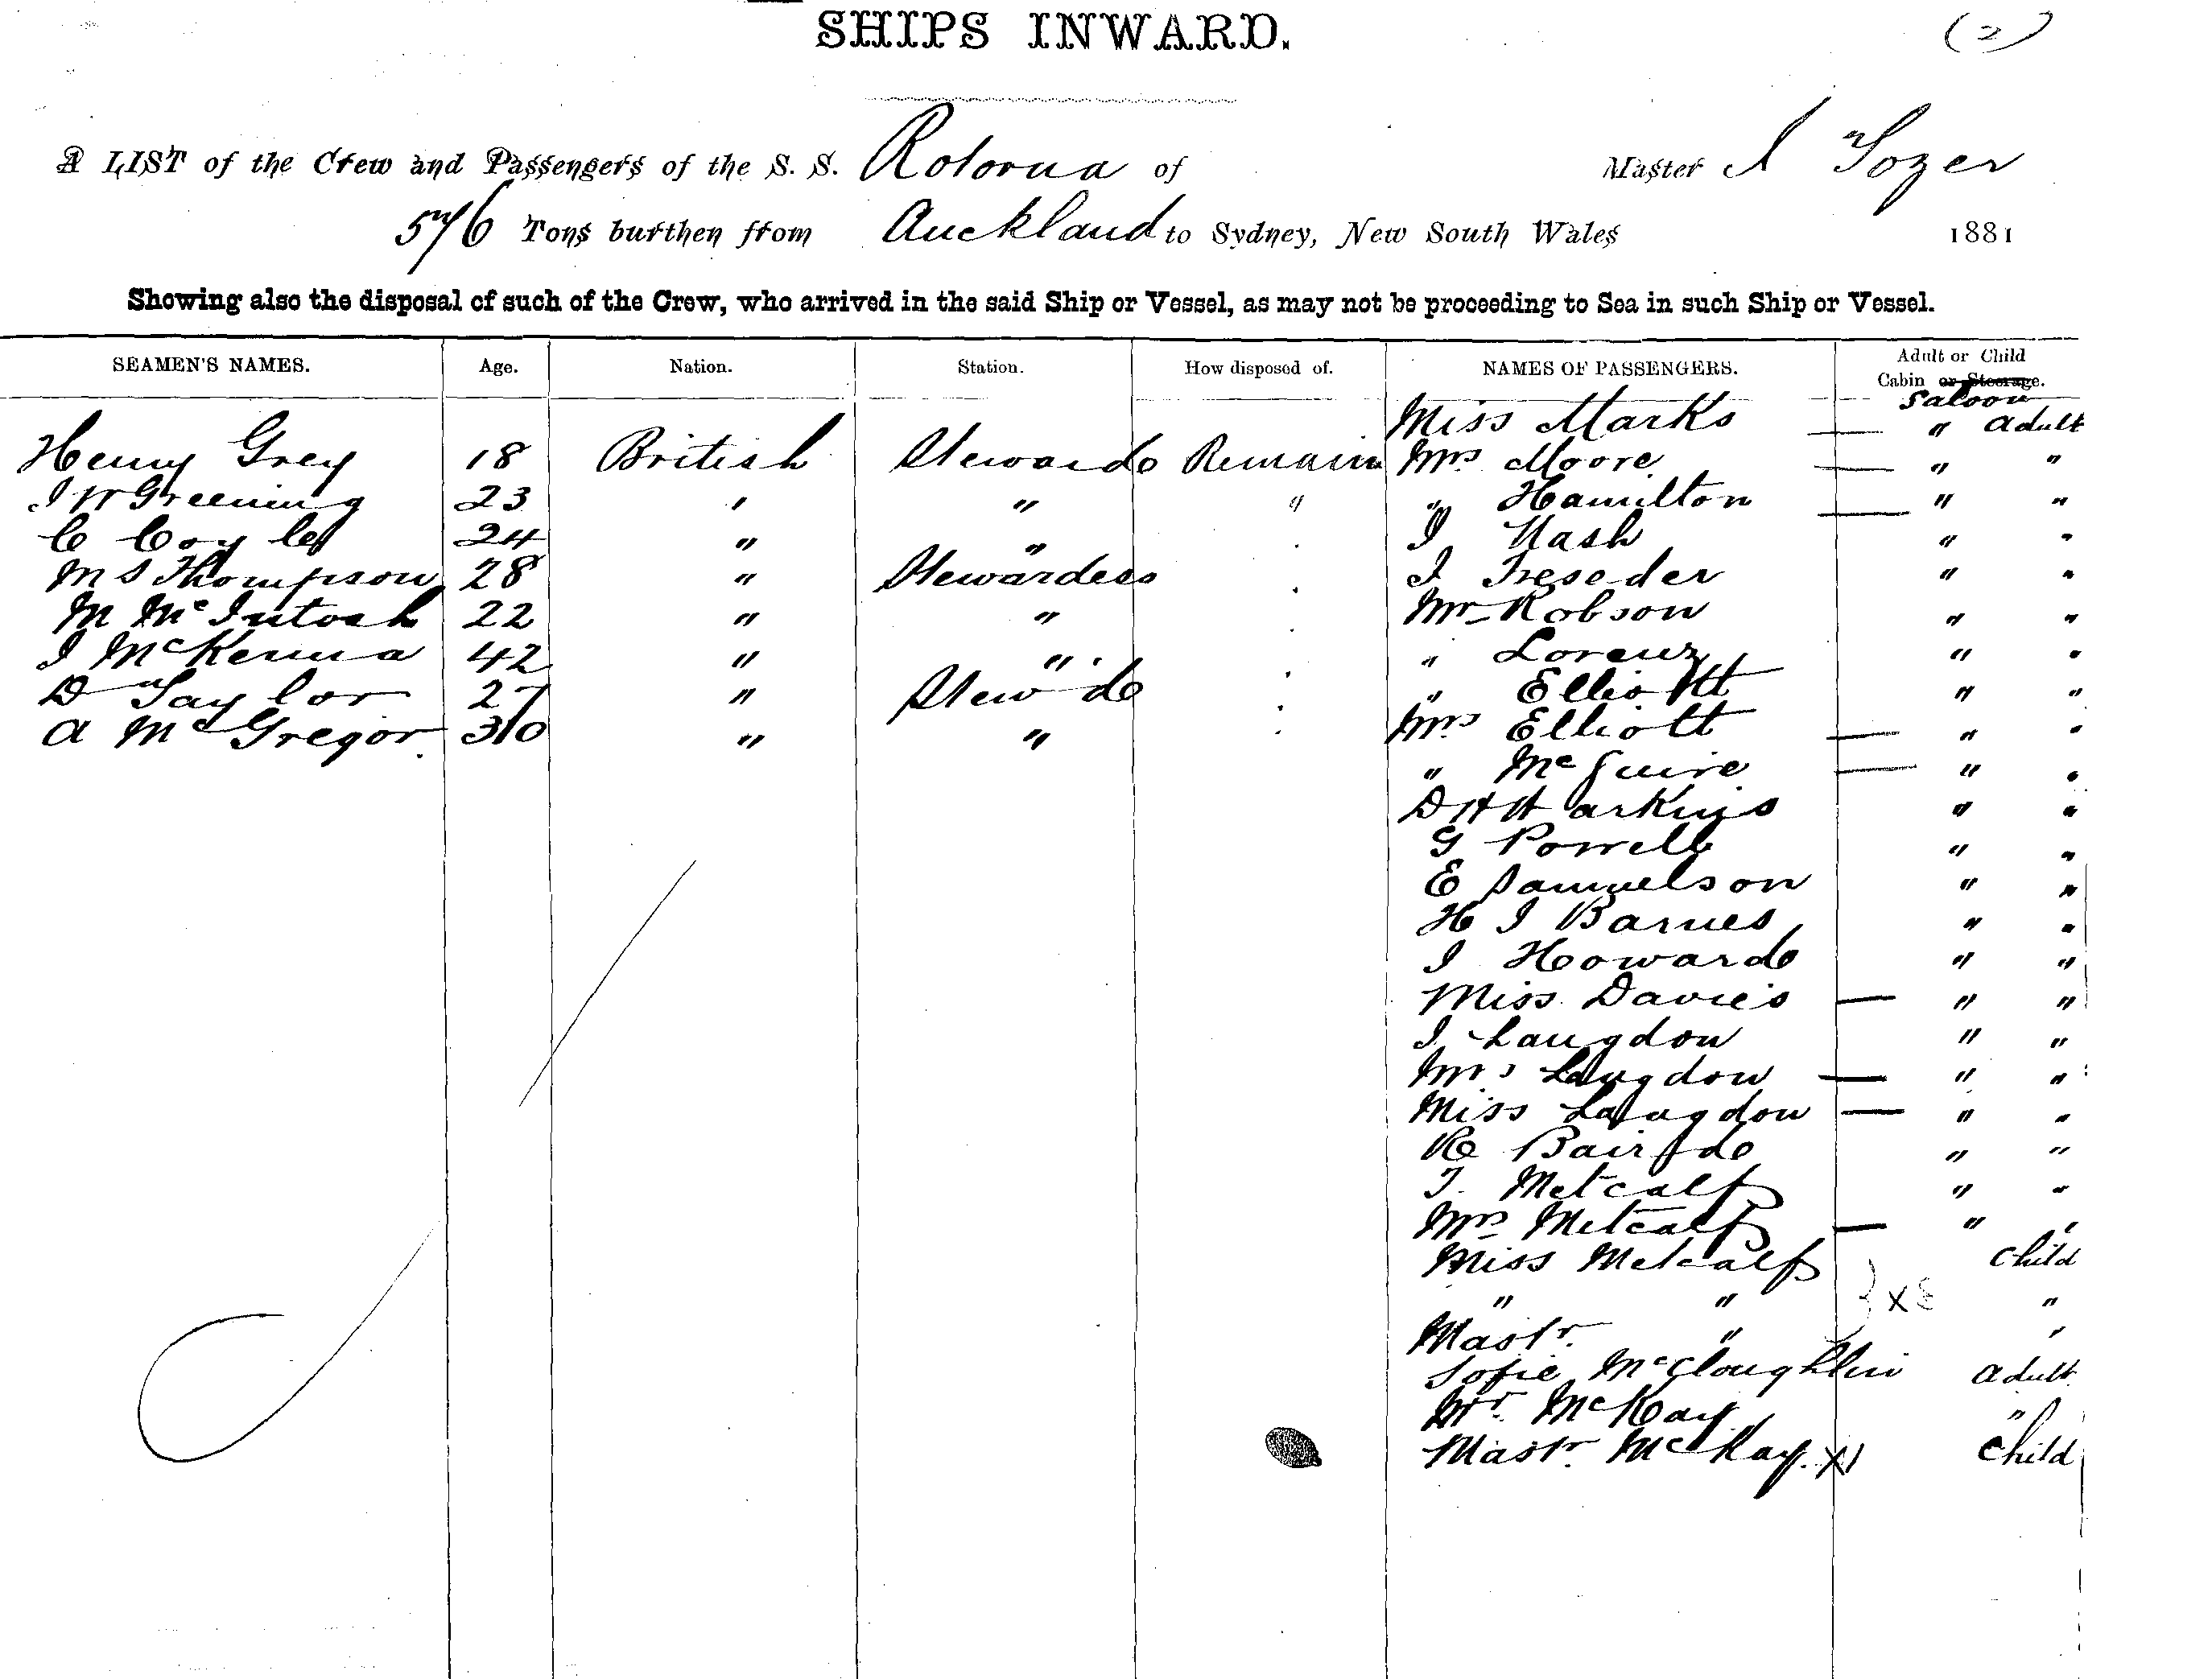 SHIPS INWARD.
(2)
A LIST of the Crew and Passengers of the S. S. Rotorua of Master I Sozer
576 Tons burthen from Auckland to Sydney, New South Wales 1881
Showing also the disposal of such of the Crew, who arrived in the said Ship or Vessel, as may not be proceeding to Sea in such Ship or Vessel.
SEAMEN'S NAMES. Age. Nation. Station. How disposed of. NAMES OF PASSENGERS. Adult or Child
Cabin or Steerage.
Saloon
Miss Marks " Adult
Henry Grey 18 British Steward Remain Mrs Moore " "
J W Greening 23 " " " " Hamilton " "
C Coyle 24 " " . J Nash " "
M S Thompson 28 " Stewardess . J Tresoder " "
M McIntosh 22 " " . Mr Robson " "
J McKenna 42 " " . " Lorenz " "
D Taylor 27 " Stewd . " Elliott " "
A McGregor 30 " " . Mrs Elliott " "
" McGuire " "
D H Harkins " "
G Powell " "
E Samuelson " "
H J Barnes " "
J Howard " "
Miss Davies " "
J Langdon " "
Mrs Langdon " "
Miss Langdon " "
R Baird " "
T. Metcalf " "
Mrs Metcalf " "
Miss Metcalf Child
" " "
Mastr. " "
Sofie McCloughlin Adult
Mr. McKay "
Mastr. McKay. X1 Child